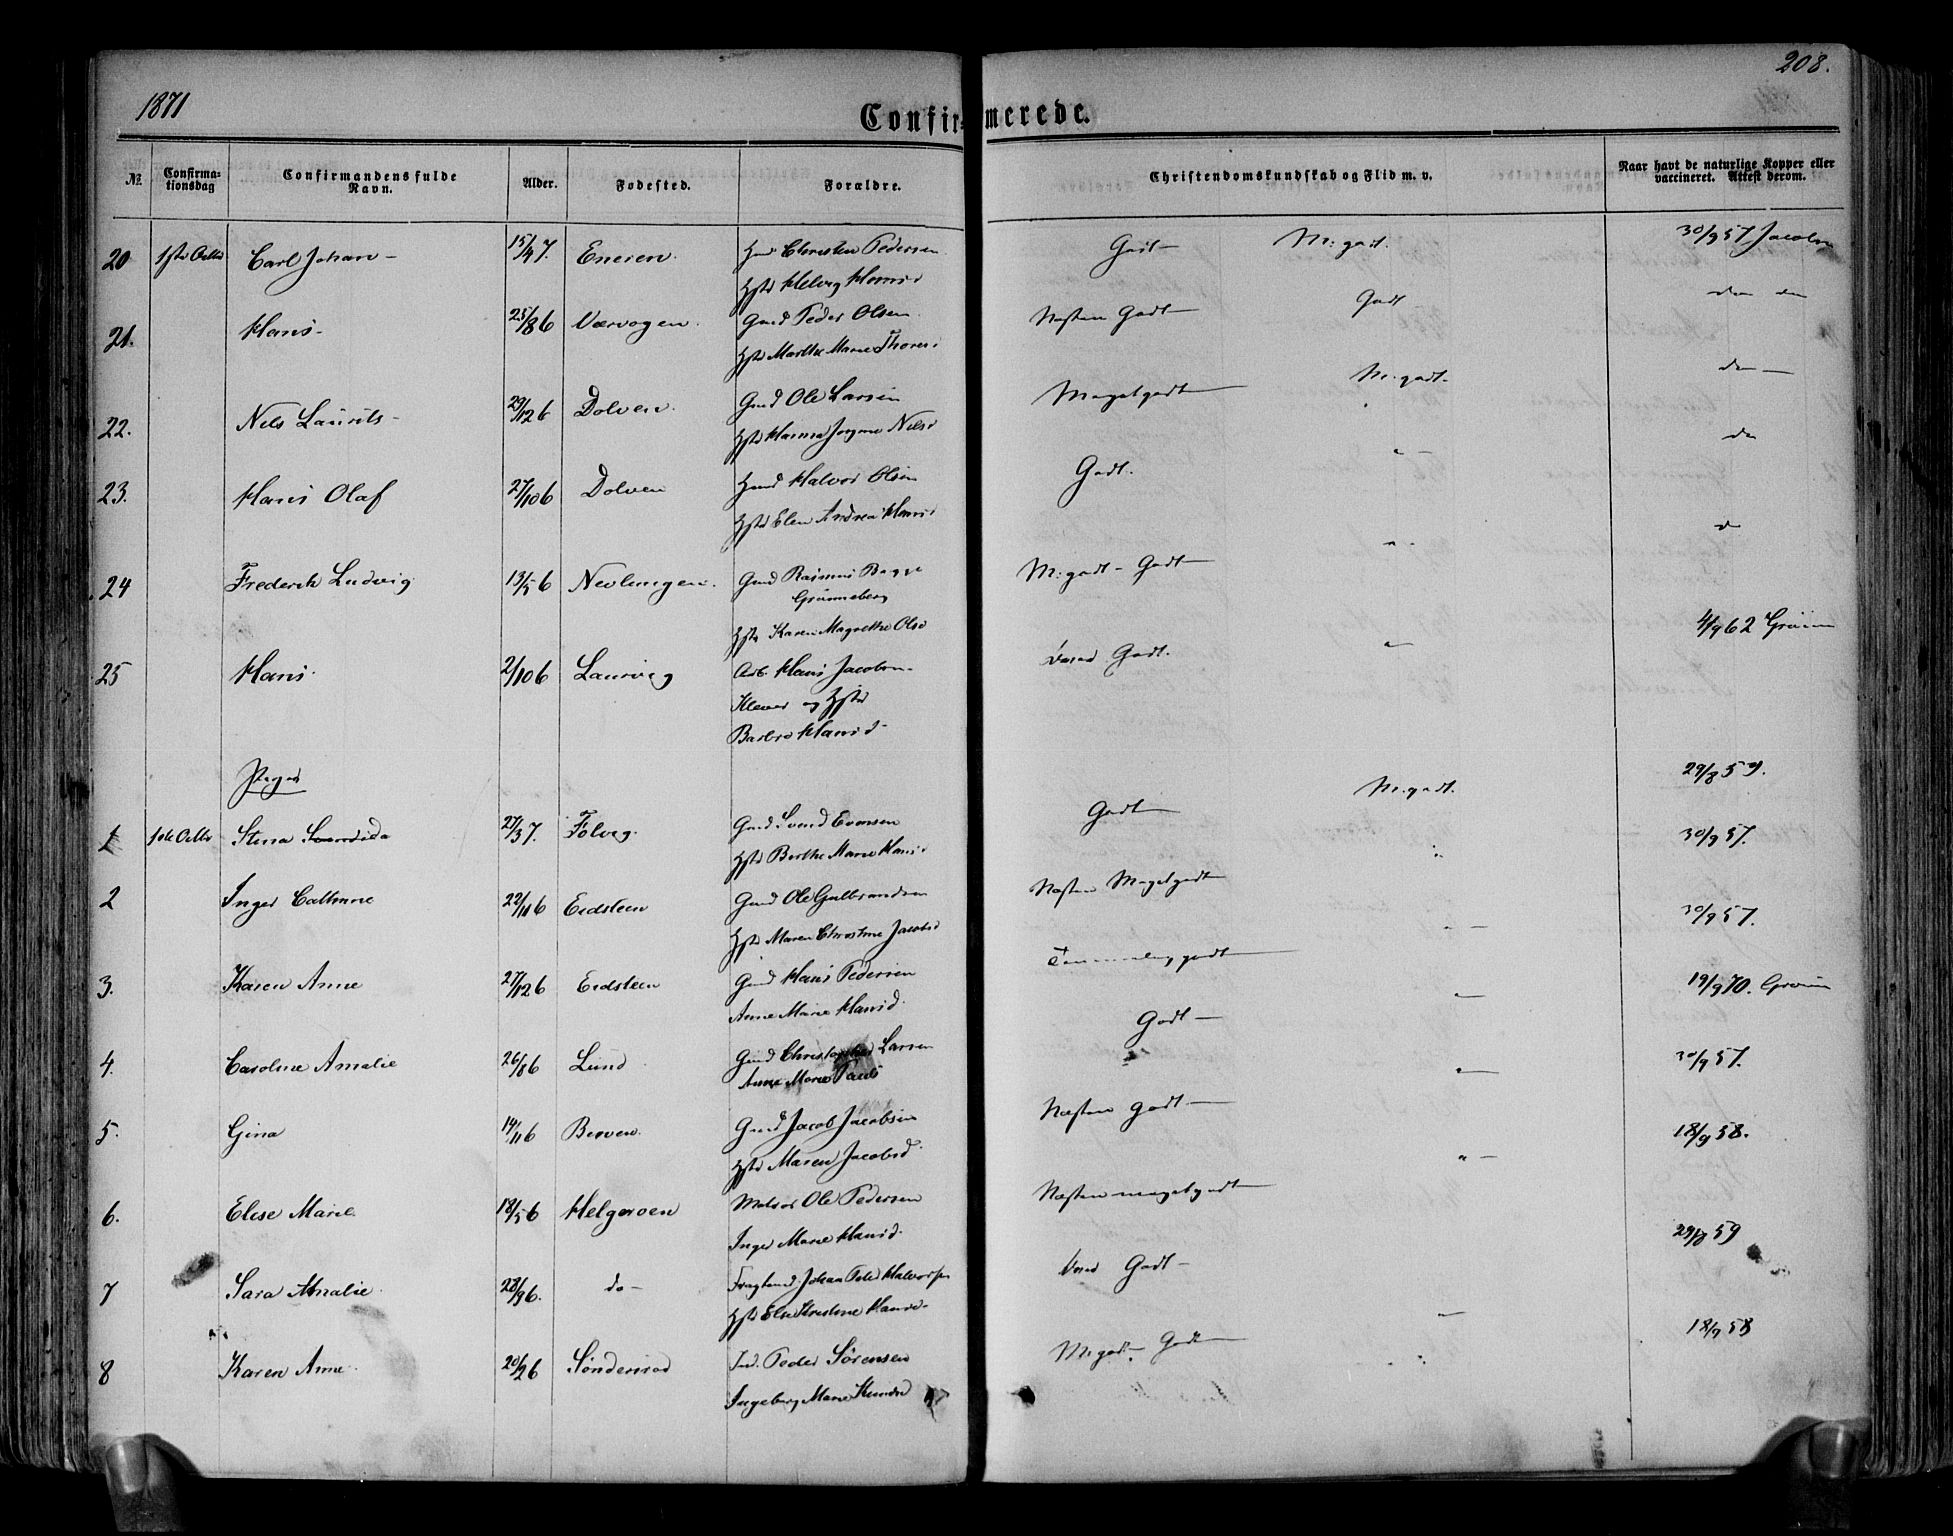 1871
208.
Confirmerede.
№ Confirmationsdag Confirmandens fulde Navn. Alder. Fødested. Forældre. Christendomskundskab og Flid m. v. Naar havt de naturlige Kopper eller vaccineret. Attest derom.
20 1ste Octbr Carl Johan - 15/4 7. Eneren. Christen Pedersen Godt - M: godt. 30/9 57 Jacobsen
Hstr Helvig Hansd
21. Hans - 23/8 6 Nærvogen. Gmd Peder Olsen. Næsten Godt - Godt do do
Hstr Marthe Marie Thoresd
22. Nils Laurits - 29/12 6 Dolven. Gmd Ole Larsen Megetgodt M. godt. do -
Hstr Hanna Jorgine Nilsd
23. Hans Olaf 27/10 6 Dolven Halvor Olsen Godt. " - do
Hstr Elen Andrea Hansd
24 Frederik Ludvig. 13/5 6 Nevlungen. Gmd Rasmus Bagge M: godt - Godt - " - d
Grønneberg
Hstr Karen Magrethe Olsd
25 Hans. 2/10 6 Laurvig Arb. Hans Jacobsen - Godt. " 4/9 62
Klever og Hstr
Barbro Hansd -
Piger
1 1ste Octbr Stina 27/3 7. Folvig. Gmd Svend Evensen Godt M. godt. 29/8 59.
Hstr Berthe Marie Hansd
2 Inger Cathrine 22/11 6 Eedsteen Gmd Ole Gulbrandsen Næsten Megetgodt " 30/9 57.
Hstr Maren Christine Jacobsd
3. Karen Anne 27/12 6 Eedsteen Gmd Hans Pedersen Temmelig godt " - 30/9 57.
Anne Marie Hansd.
4. Caroline Amalie 26/8 6 Lund Gmd Christopher Larsen Godt - " 19/9 70.
Anne Marie Pauls
5. Gina 14/11 6 Berven. Gmd Jacob Jacobsen Næsten godt - " 30/9 57.
Hstr Maren Jacobsd.
6. Elise Marie 18/5 6 Helgeroen Ole Pedersen Næsten megetgodt " - 18/9 58.
Inger Marie Hansd.
7 Sara Amalie. 28/9 6. do - Johan Peter Halvorsen Godt - 29/8 59
Hstr Else Kristine Hansd -
8 Karen Anne. 20/2 6 Sønderrød Ind. Peder Sørensen M. godt - Godt - 18/9 58
Ingeborg Marie